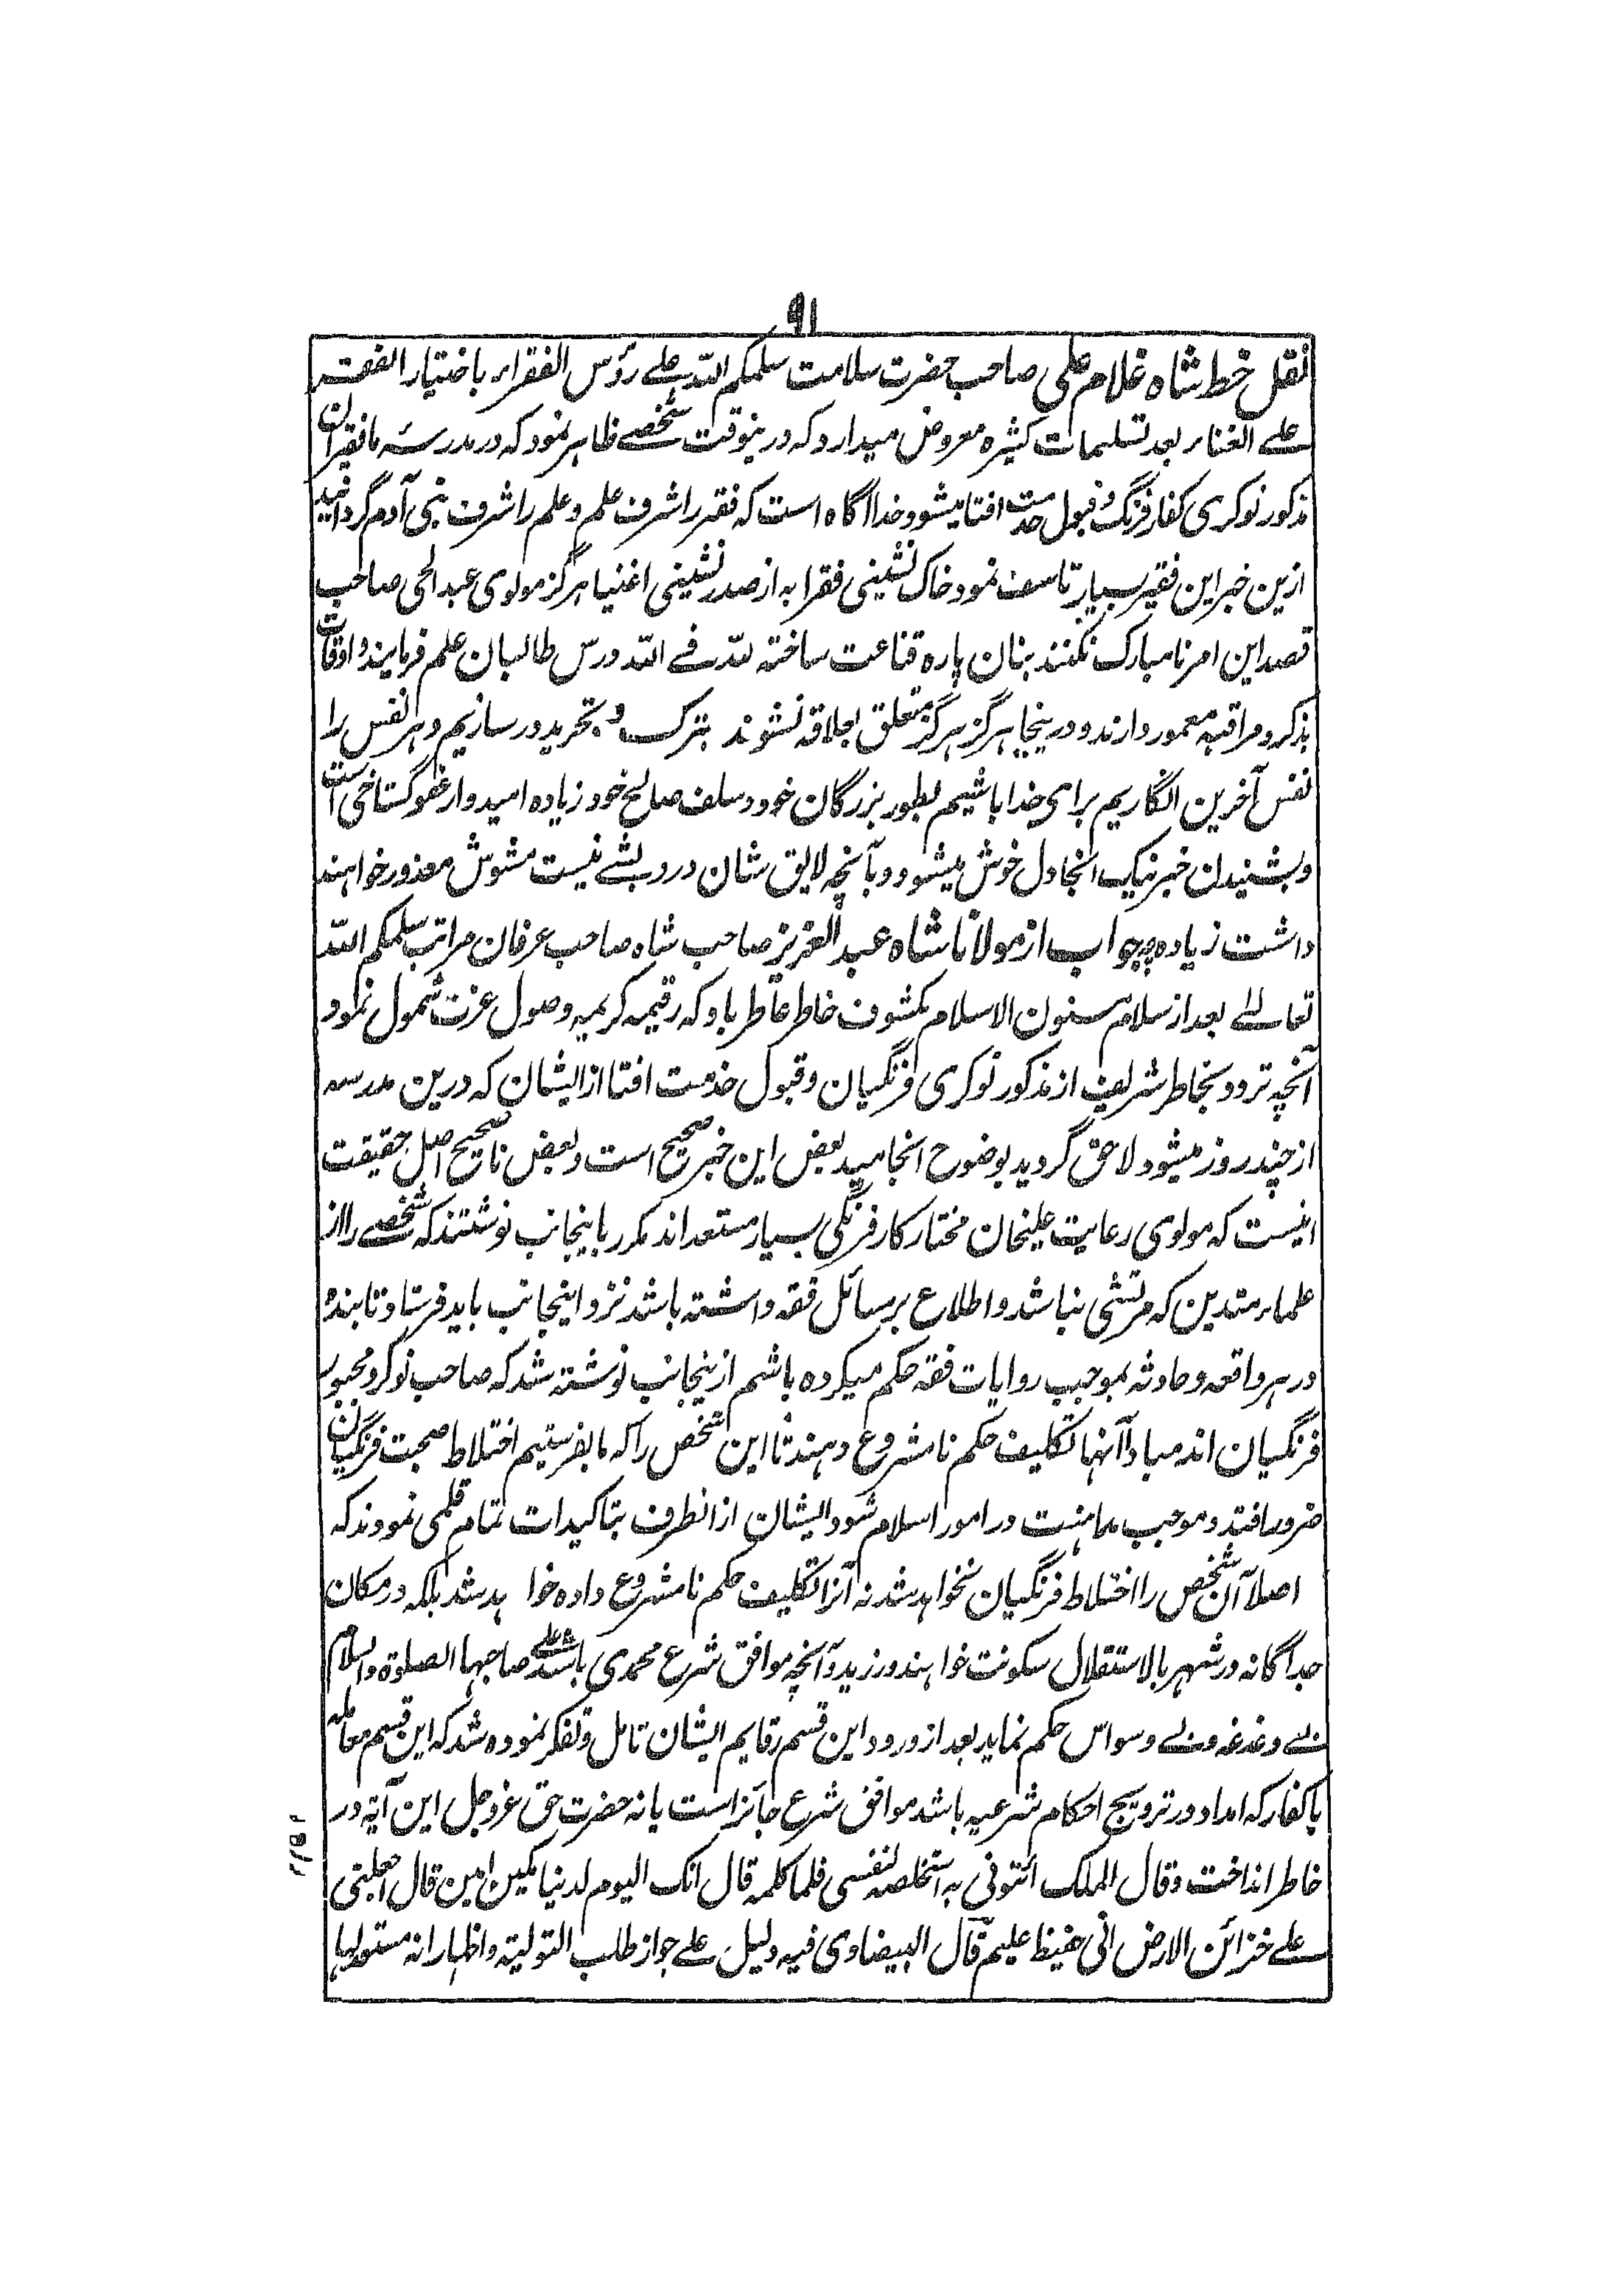 ۹۱
نقل خط شاه غلام علی صاحب حضرت سلامت سلمکم الله علے رؤس الفقراء باختیار الفقر
علے الغناء بعد تسلیمات کثیره معروض میدارد که درینوقت شخصے ظاهر نمود که در مدرسه ما فقیران
مذکور نوکری کفار فرنگ و قبول خدمت افتا میشود خدا آگاه است که فقر را شرف علم و علم را شرف بنی آدم گردانید
ازین خبر این فقیر بسیار تاسف نمود خاک نشینی فقرا به از صدر نشینی اغنیا هرگز مولوی عبد الحی صاحب
قصد این امر نامبارک نکنند بنان پاره قناعت ساخته لله فے الله درس طالبان علم فرمایند و اوقات
بذکر و مراقبه معمور دارند و درینجا هرگز هرگز متعلق بعلاقه نشوند بترک و تجرید در سازیم و هر نفس را
نفس آخرین انگاریم برای خدا باشیم بطور بزرگان خود و سلف صالح خود زیاده امیدوار عفو گستاخی است
و بشنیدن خبر نیک آنجا دل خوش میشود و بآنچه لایق شان درویشے نیست مشوش معذور خواهند
داشت زیاده چه جواب از مولانا شاه عبد العزیز صاحب شاه صاحب عرفان مراتب سلمکم الله
تعالے بعد از سلام مسنون الاسلام مکشوف خاطر عاطر باد که رقیمه کریمه وصول عزت شمول نمود
آنچه تردد بخاطر شریف از مذکور نوکری فرنگیان و قبول خدمت افتا از ایشان که درین مدرسه
از چند روز میشود لاحق گردید بوضوح انجامید بعض این خبر صحیح است و بعض نا صحیح اصل حقیقت
اینست که مولوی رعایت علیخان مختار کار فرنگی بسیار مستعد اند مکرر باینجانب نوشتند که شخصے را از
علماء متدین که مرتشی نباشد و اطلاع بر مسائل فقه داشته باشد نزد اینجانب باید فرستاد تا بنده
در هر واقعه و حادثه بموجب روایات فقه حکم میکرده باشم ازینجانب نوشته شد که صاحب نوکر و مجبور
فرنگیان اند مبادا آنها تکلیف حکم نا مشروع دهند تا این شخص را که ما بفرستیم اختلاط صحبت فرنگیان
ضرور افتد و موجب مداهنت در امور اسلام شود ایشان از انطرف بتاکیدات تمام قلمی نمودند که
اصلا آن شخص را اختلاط فرنگیان نخواهد شد نه آنرا تکلیف حکم نا مشروع داده خواهد شد بلکه در مکان
جداگانه در شهر بالاستقلال سکونت خواهند ورزید و آنچه موافق شرع محمدی باشد علی صاحبها الصلوة والسلام
بے دغدغه و بے وسواس حکم نماید بعد از ورود این قسم رقایم ایشان تامل و تفکر نموده شد که این قسم معامله
با کفار که امداد در ترویج احکام شرعیه باشد موافق شرع جائز است یا نه حضرت حق عزوجل این آیه در
خاطر انداخت وقال الملک ائتونی به استخلصه لنفسی فلما کلمه قال انک الیوم لدینا مکین امین قال اجعلنی
علے خزائن الارض انی حفیظ علیم قال البیضاوی فیه دلیل علے جواز طلب التولیة واظهار انه مستعد لها